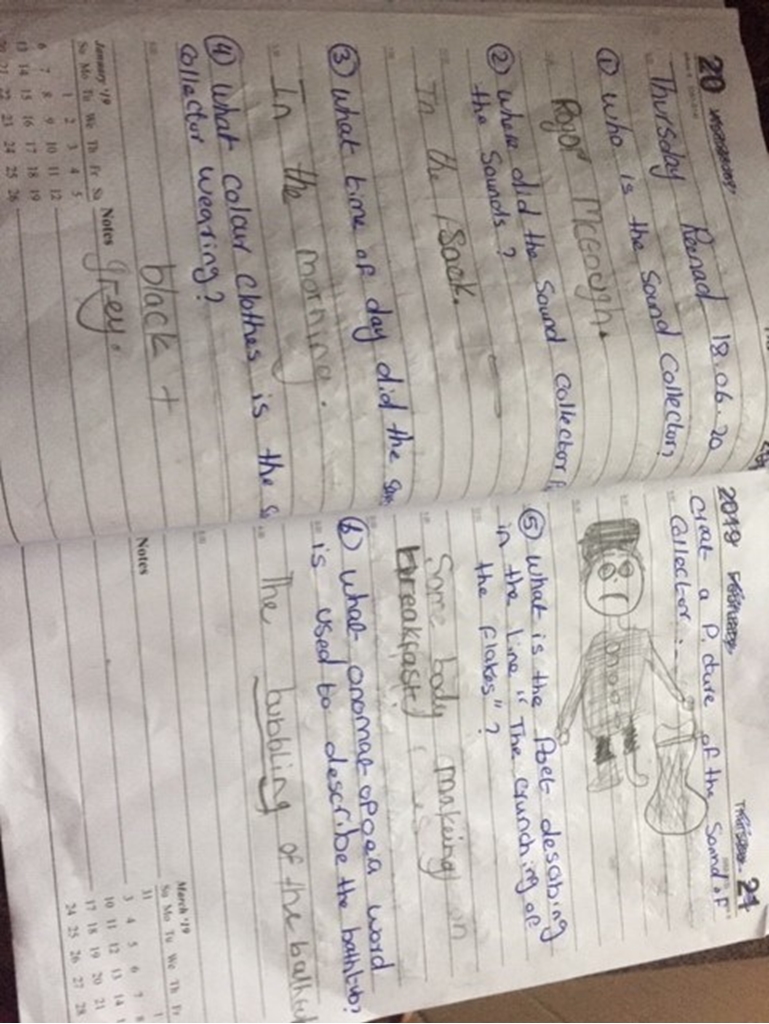 20
Thursday Renad 18.06.20
① Who is the Sound Collector?
Roger McGough.
② where did the Sound Collector
the Sounds?
In the Sack.
③ what time of day did the
In the morning.
④ What colour clothes is the
Collector wearing?
black +
grey.
January '19
Su Mo Tu We Th Fr Sa
1 2 3 4 5
6 7 8 9 10 11 12
13 14 15 16 17 18 19
20 21 22 23 24 25 26
Notes
2019
21
Creat a Picture of the Sound of
Collector.
⑤ What is the Poet describing
in the line "The crunching of
the flakes"?
Some body makeing
breakfast
⑥ what onomatopoeia word
is used to describe the bathtub?
The bubbling of the bathtub
Notes
March '19
Su Mo Tu We Th Fr
31 1
3 4 5 6 7 8
10 11 12 13 14
17 18 19 20 21
24 25 26 27 28